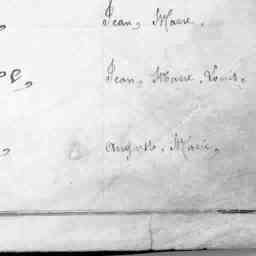 Jean, Marie.
Jean, Marie, Louis.
Auguste, Marie.